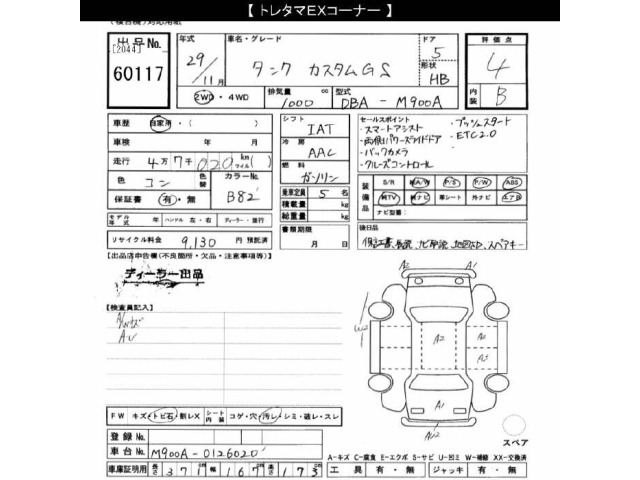 【 トレタマEXコーナー 】
(複合機)対応用紙
出品No.
[2044]
60117
年式
29年
11月
車名・グレード
タンク カスタムGS
ドア
5
形状
HB
評価点
4
内装
B
2WD・4WD
排気量
1000 cc
型式
DBA - M900A
車歴
自家用・( )
車検 年 月
走行 4万7千020 km マイル ( )
色 コン 色替
カラーNo. B82
保証書 有・無
シフト
IAT
冷房
AAC
燃料
ガソリン
乗車定員 5 名
積載量 kg
総重量 kg
セールスポイント
・スマートアシスト
・両側パワースライドドア
・バックカメラ
・クルーズコントロール
・プッシュスタート
・ETC2.0
装備品
S/R A/W P/S P/W ABS
純TV 純ナビ 革シート 外ナビ エアB
ナビ型番:
モデル年式 年 ハンドル 左・右 ディーラー・並行
リサイクル料金 9,130 円 預託済
書類期限
月 日
後日品
保証書、取説、ナビ取説、地図SD、スペアキー
【出品店申告欄(不良箇所・欠品・注意事項等)】
ディーラー出品
【検査員記入】
A/Wキズ
AU
FW キズ・トビ石・割レX
シート内装 コゲ・穴・汚レ・シミ・破レ・スレ
登録No.
車台No. M900A-0126020
車庫証明用 長さ 371 幅 167 高さ 173
A2
A1
W2
A2
A2
A3
A1
AU2
スペア
A-キズ C-腐食 E-エクボ S-サビ U-凹ミ W-補修 XX-交換済
工具 有・無 ジャッキ 有・無